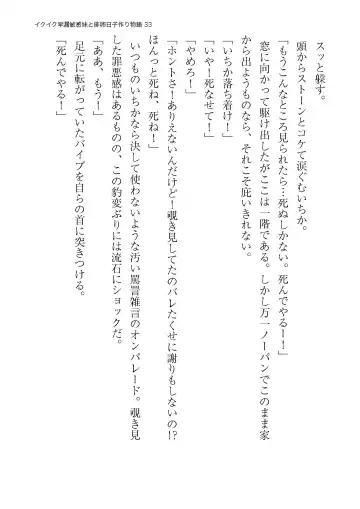 イクイク早漏敏感妹と排卵日子作り物語 33
スッと躱す。
頭からストーンとコケて涙ぐむいちか。
「もうこんなところ見られたら…死ぬしかない。死んでやるー！」
窓に向かって駆け出したがここは一階である。しかし万一ノーパンでこのまま家
から出ようものなら、それこそ庇いきれない。
「いちか落ち着け！」
「いや！死なせて！」
「やめろ！」
「ホントさ！ありえないんだけど！覗き見してたのバレたくせに謝りもしないの!?
ほんっと死ね、死ね！」
いつものいちかなら決して使わないような汚い罵詈雑言のオンパレード。覗き見
した罪悪感はあるものの、この豹変ぶりには流石にショックだ。
「ああ、もう！」
足元に転がっていたバイブを自らの首に突きつける。
「死んでやる！」